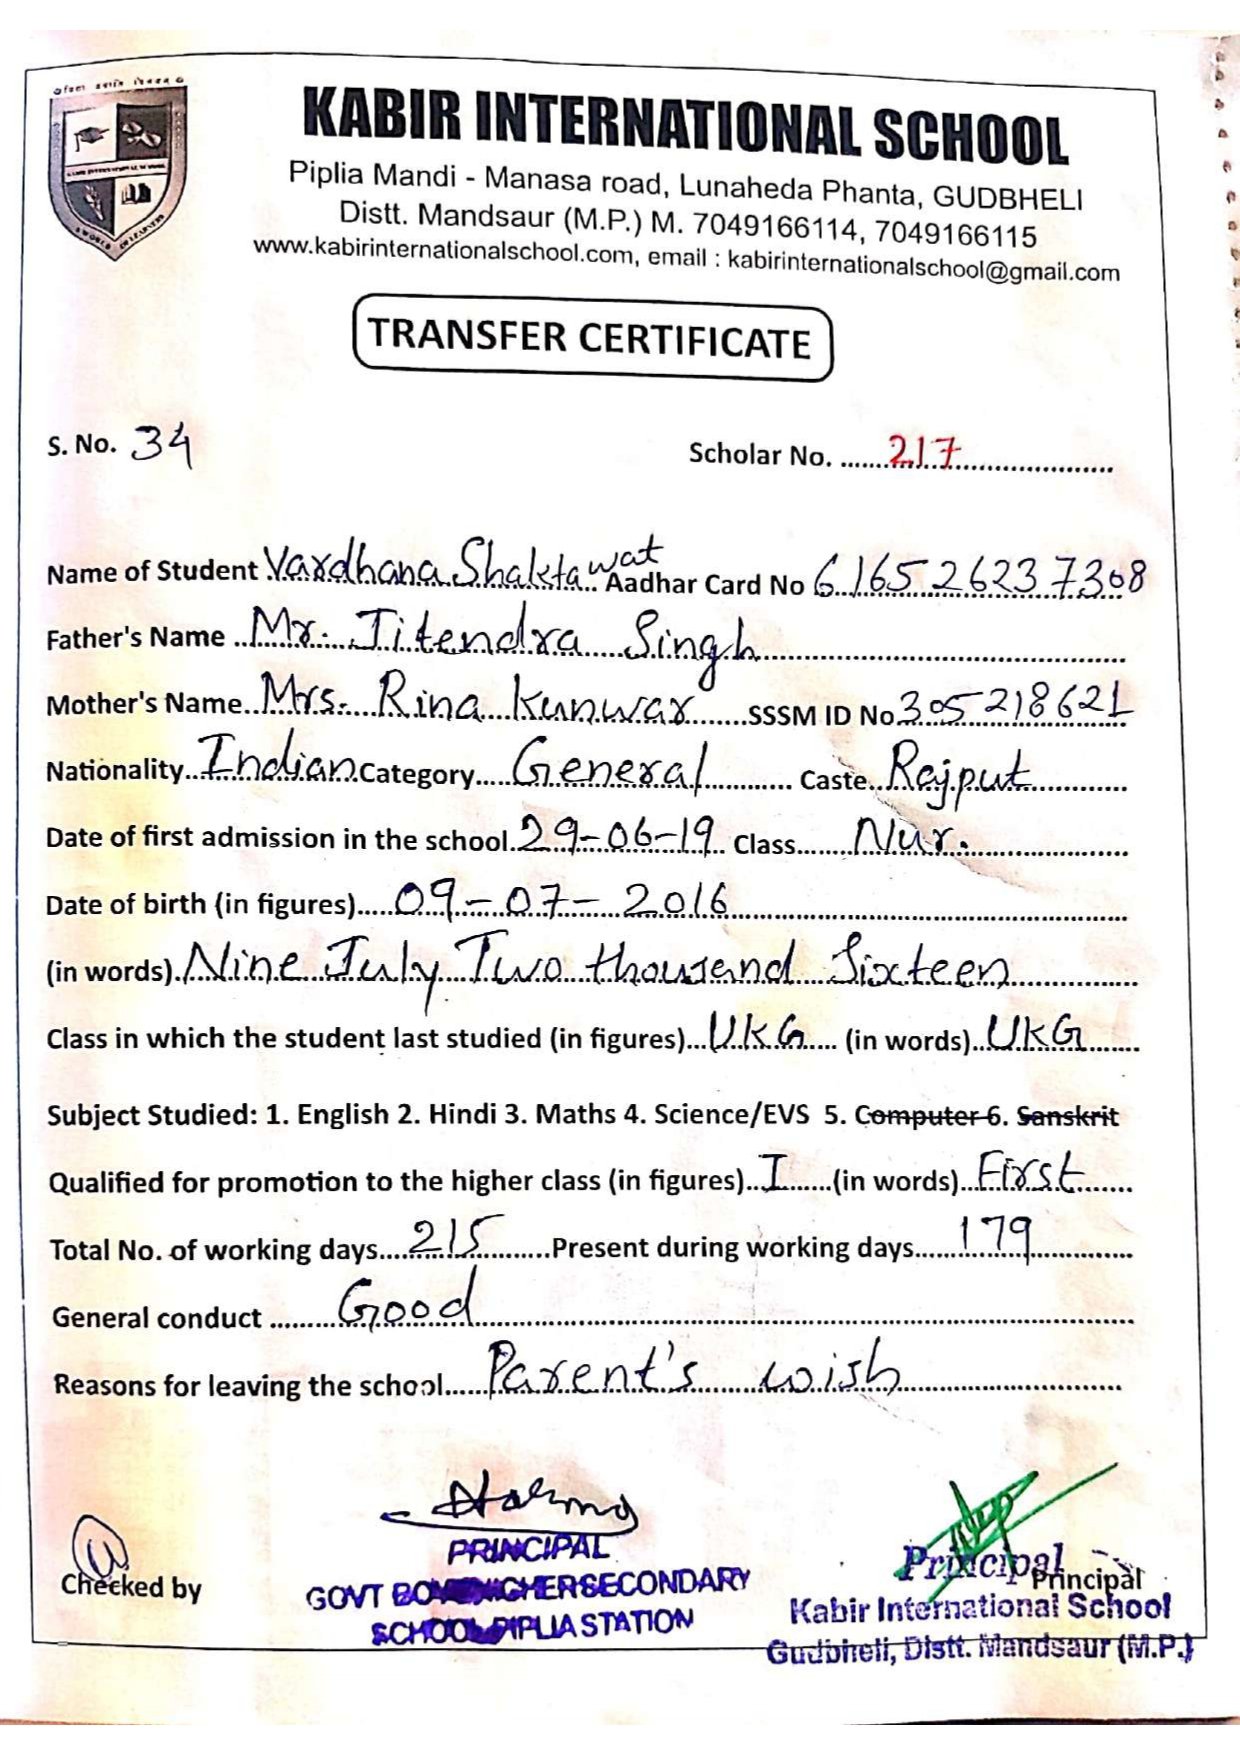 KABIR INTERNATIONAL SCHOOL
Piplia Mandi - Manasa road, Lunaheda Phanta, GUDBHELI
Distt. Mandsaur (M.P.) M. 7049166114, 7049166115
www.kabirinternationalschool.com, email : kabirinternationalschool@gmail.com
TRANSFER CERTIFICATE
S. No. 34 Scholar No. 217
Name of Student Vardhana Shaktawat Aadhar Card No 616526237308
Father's Name Mr. Jitendra Singh
Mother's Name Mrs. Rina Kunwar SSSM ID No 305218621
Nationality Indian Category General Caste Rajput
Date of first admission in the school 29-06-19 Class Nur.
Date of birth (in figures) 09-07-2016
(in words) Nine July Two thousand Sixteen
Class in which the student last studied (in figures) UKG (in words) UKG
Subject Studied: 1. English 2. Hindi 3. Maths 4. Science/EVS 5. Computer 6. Sanskrit
Qualified for promotion to the higher class (in figures) I (in words) First
Total No. of working days 215 Present during working days 179
General conduct Good
Reasons for leaving the school Parent's wish
PRINCIPAL
GOVT SECONDARY
SCHOOL PIPLIA STATION
Checked by
Principal
Principal
Kabir International School
Gudbheli, Distt. Mandsaur (M.P.)